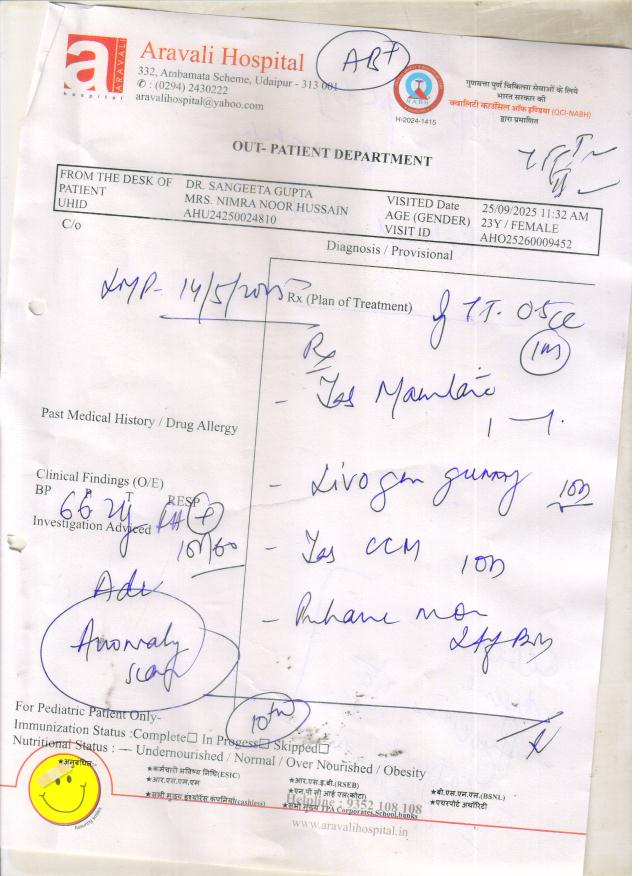 AB+
Aravali Hospital
332, Ambamata Scheme, Udaipur - 313 001
✆ : (0294) 2430222
aravalihospital@yahoo.com
a ARAVALI
hospital
NABH
H-2024-1415
गुणवत्ता पुर्ण चिकित्सा सेवाओं के लिये
भारत सरकार की
क्वालिटी काउंसिल ऑफ इण्डिया (QCI-NABH)
द्वारा प्रमाणित
OUT- PATIENT DEPARTMENT
FROM THE DESK OF DR. SANGEETA GUPTA VISITED Date 25/09/2025 11:32 AM
PATIENT MRS. NIMRA NOOR HUSSAIN AGE (GENDER) 23Y / FEMALE
UHID AHU24250024810 VISIT ID AHO25260009452
C/o
Diagnosis / Provisional
LMP- 14/5/2025
Rx (Plan of Treatment)
TT. 0.5cc
IM
Rx
Past Medical History / Drug Allergy
Clinical Findings (O/E)
BP P T RESP
66
Investigation Adviced
- Livogen gummy 10n
- CCM 10n
Adv
Anomaly
scan
10th
For Pediatric Patient Only-
Immunization Status :Complete☐ In Progess☐ Skipped☐
Nutritional Status : — Undernourished / Normal / Over Nourished / Obesity
★अनुबंधित:-
★कर्मचारी भविष्य निधि(ESIC) ★आर.एस.इ.बी.(RSEB) ★बी.एस.एन.एल.(BSNL)
★आर.एस.एम.एम ★एन.पी सी आई एल(कोटा) ★एयरपोर्ट अथॉरिटी
★सभी मुख्य इंश्योरेंस कंपनियां(cashless) ★सभी मुख्य TPA Corporates,School,banks
Helpline : 9352 108 108
www.aravalihospital.in
Assuring smiles